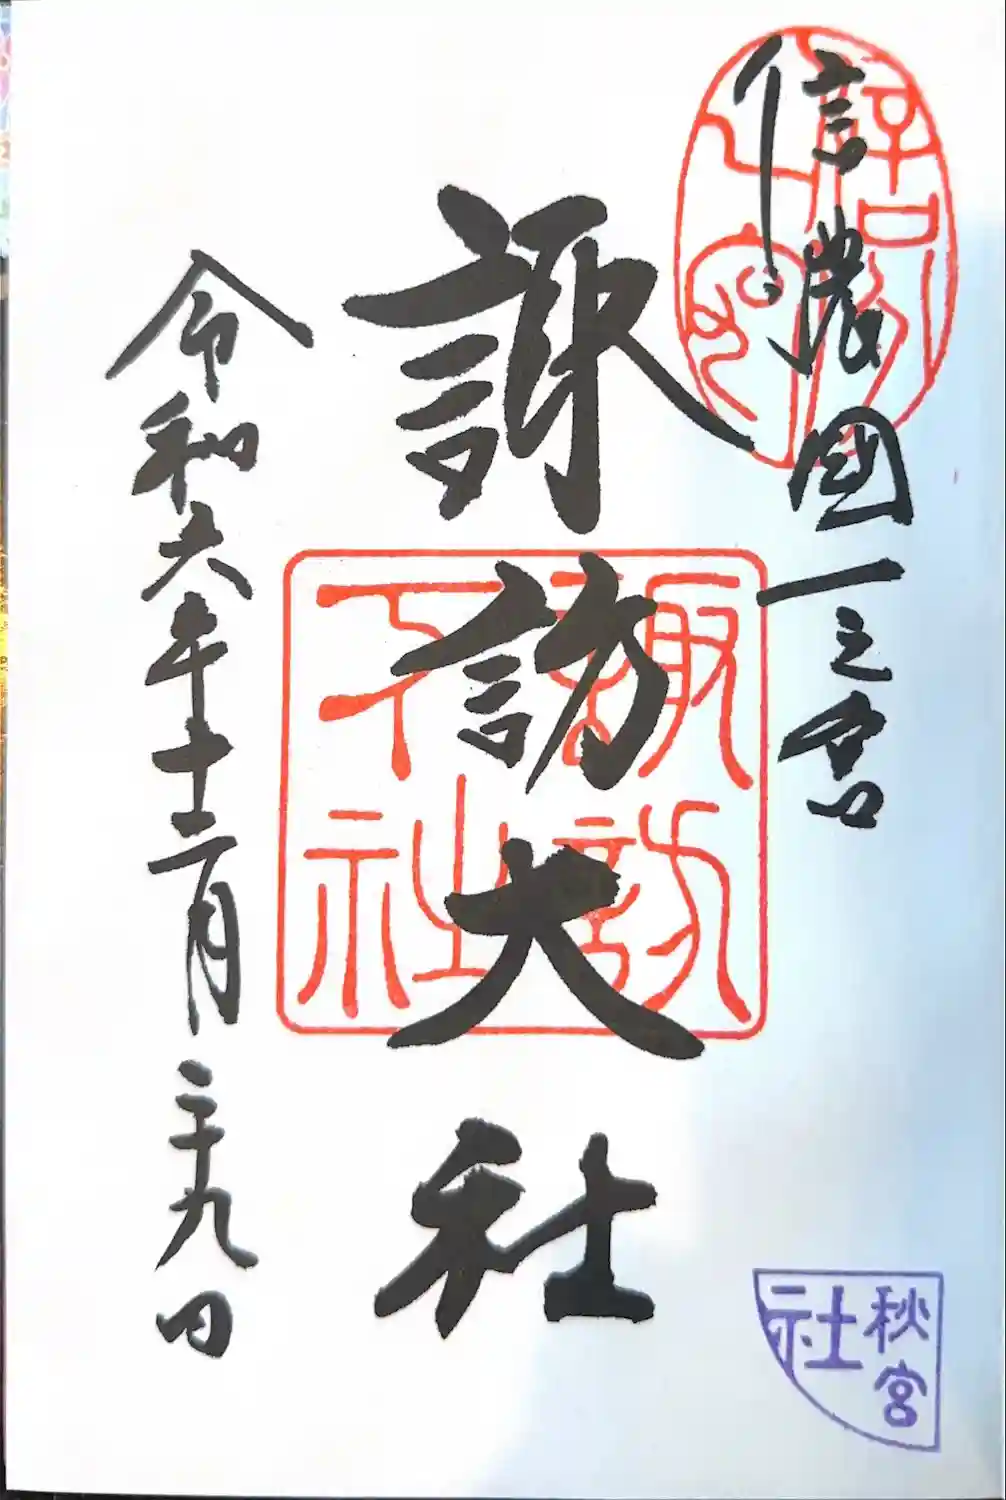 信濃國一之宮
諏訪大社
令和六年十二月二十九日
諏訪
下社
秋宮
社